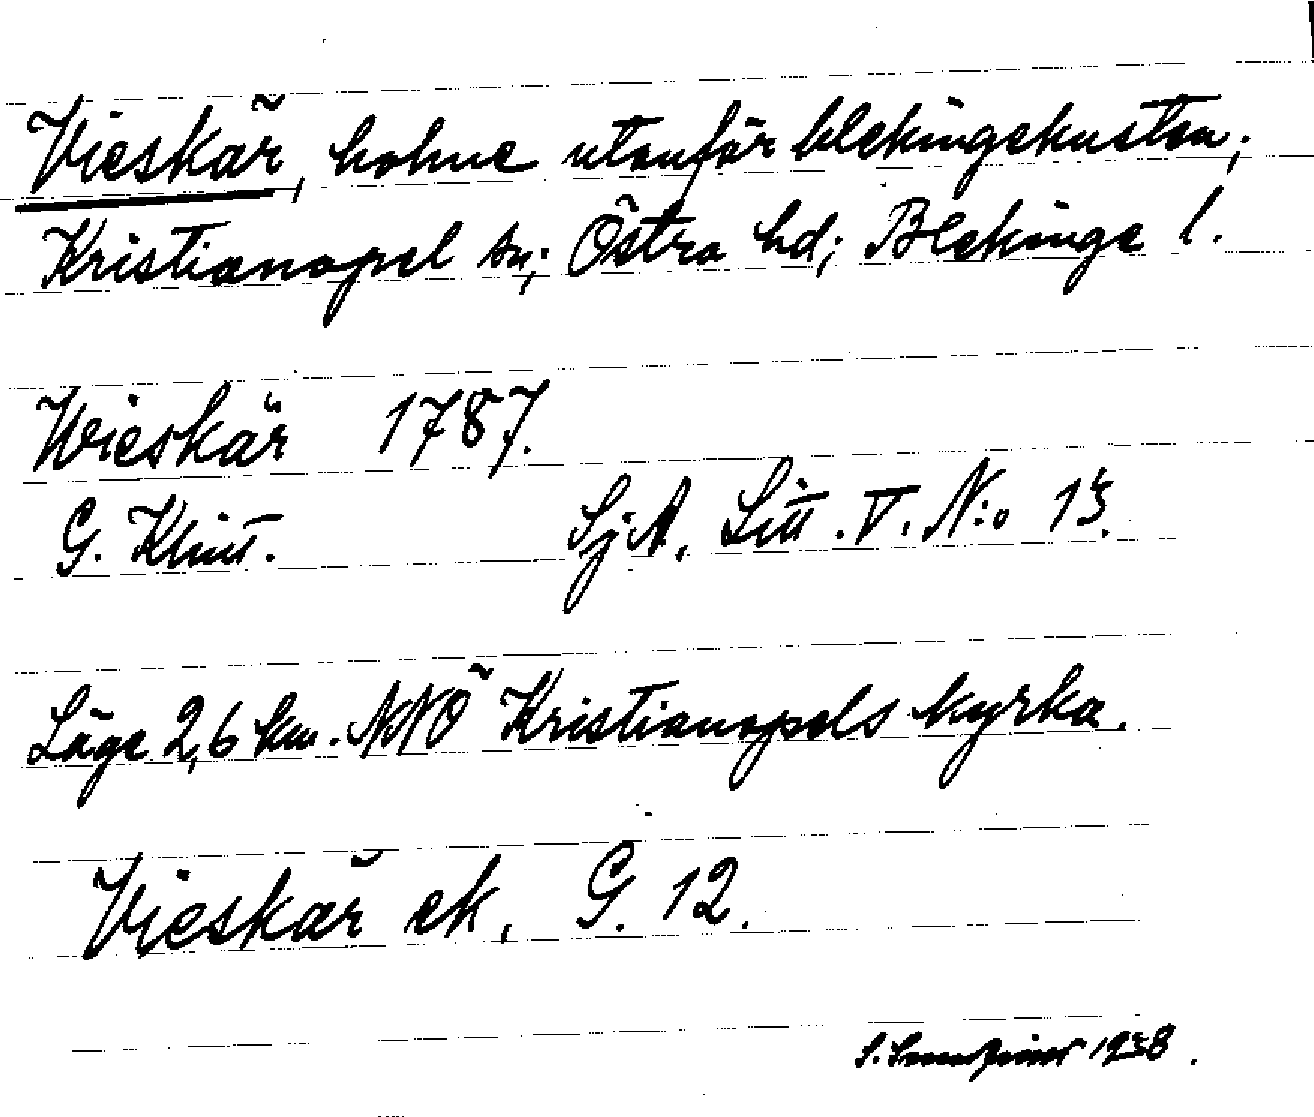 Vieskär, holme utanför blekingekusten;
Kristianopel sn; Östra hd; Blekinge l.
Wieskär 1787.
G. Klint. SjA. Litt. V. N:o 15.
Läge 2,6 km. NNÖ Kristianopels kyrka.
Vieskär ek, G. 12.
S. 1938.